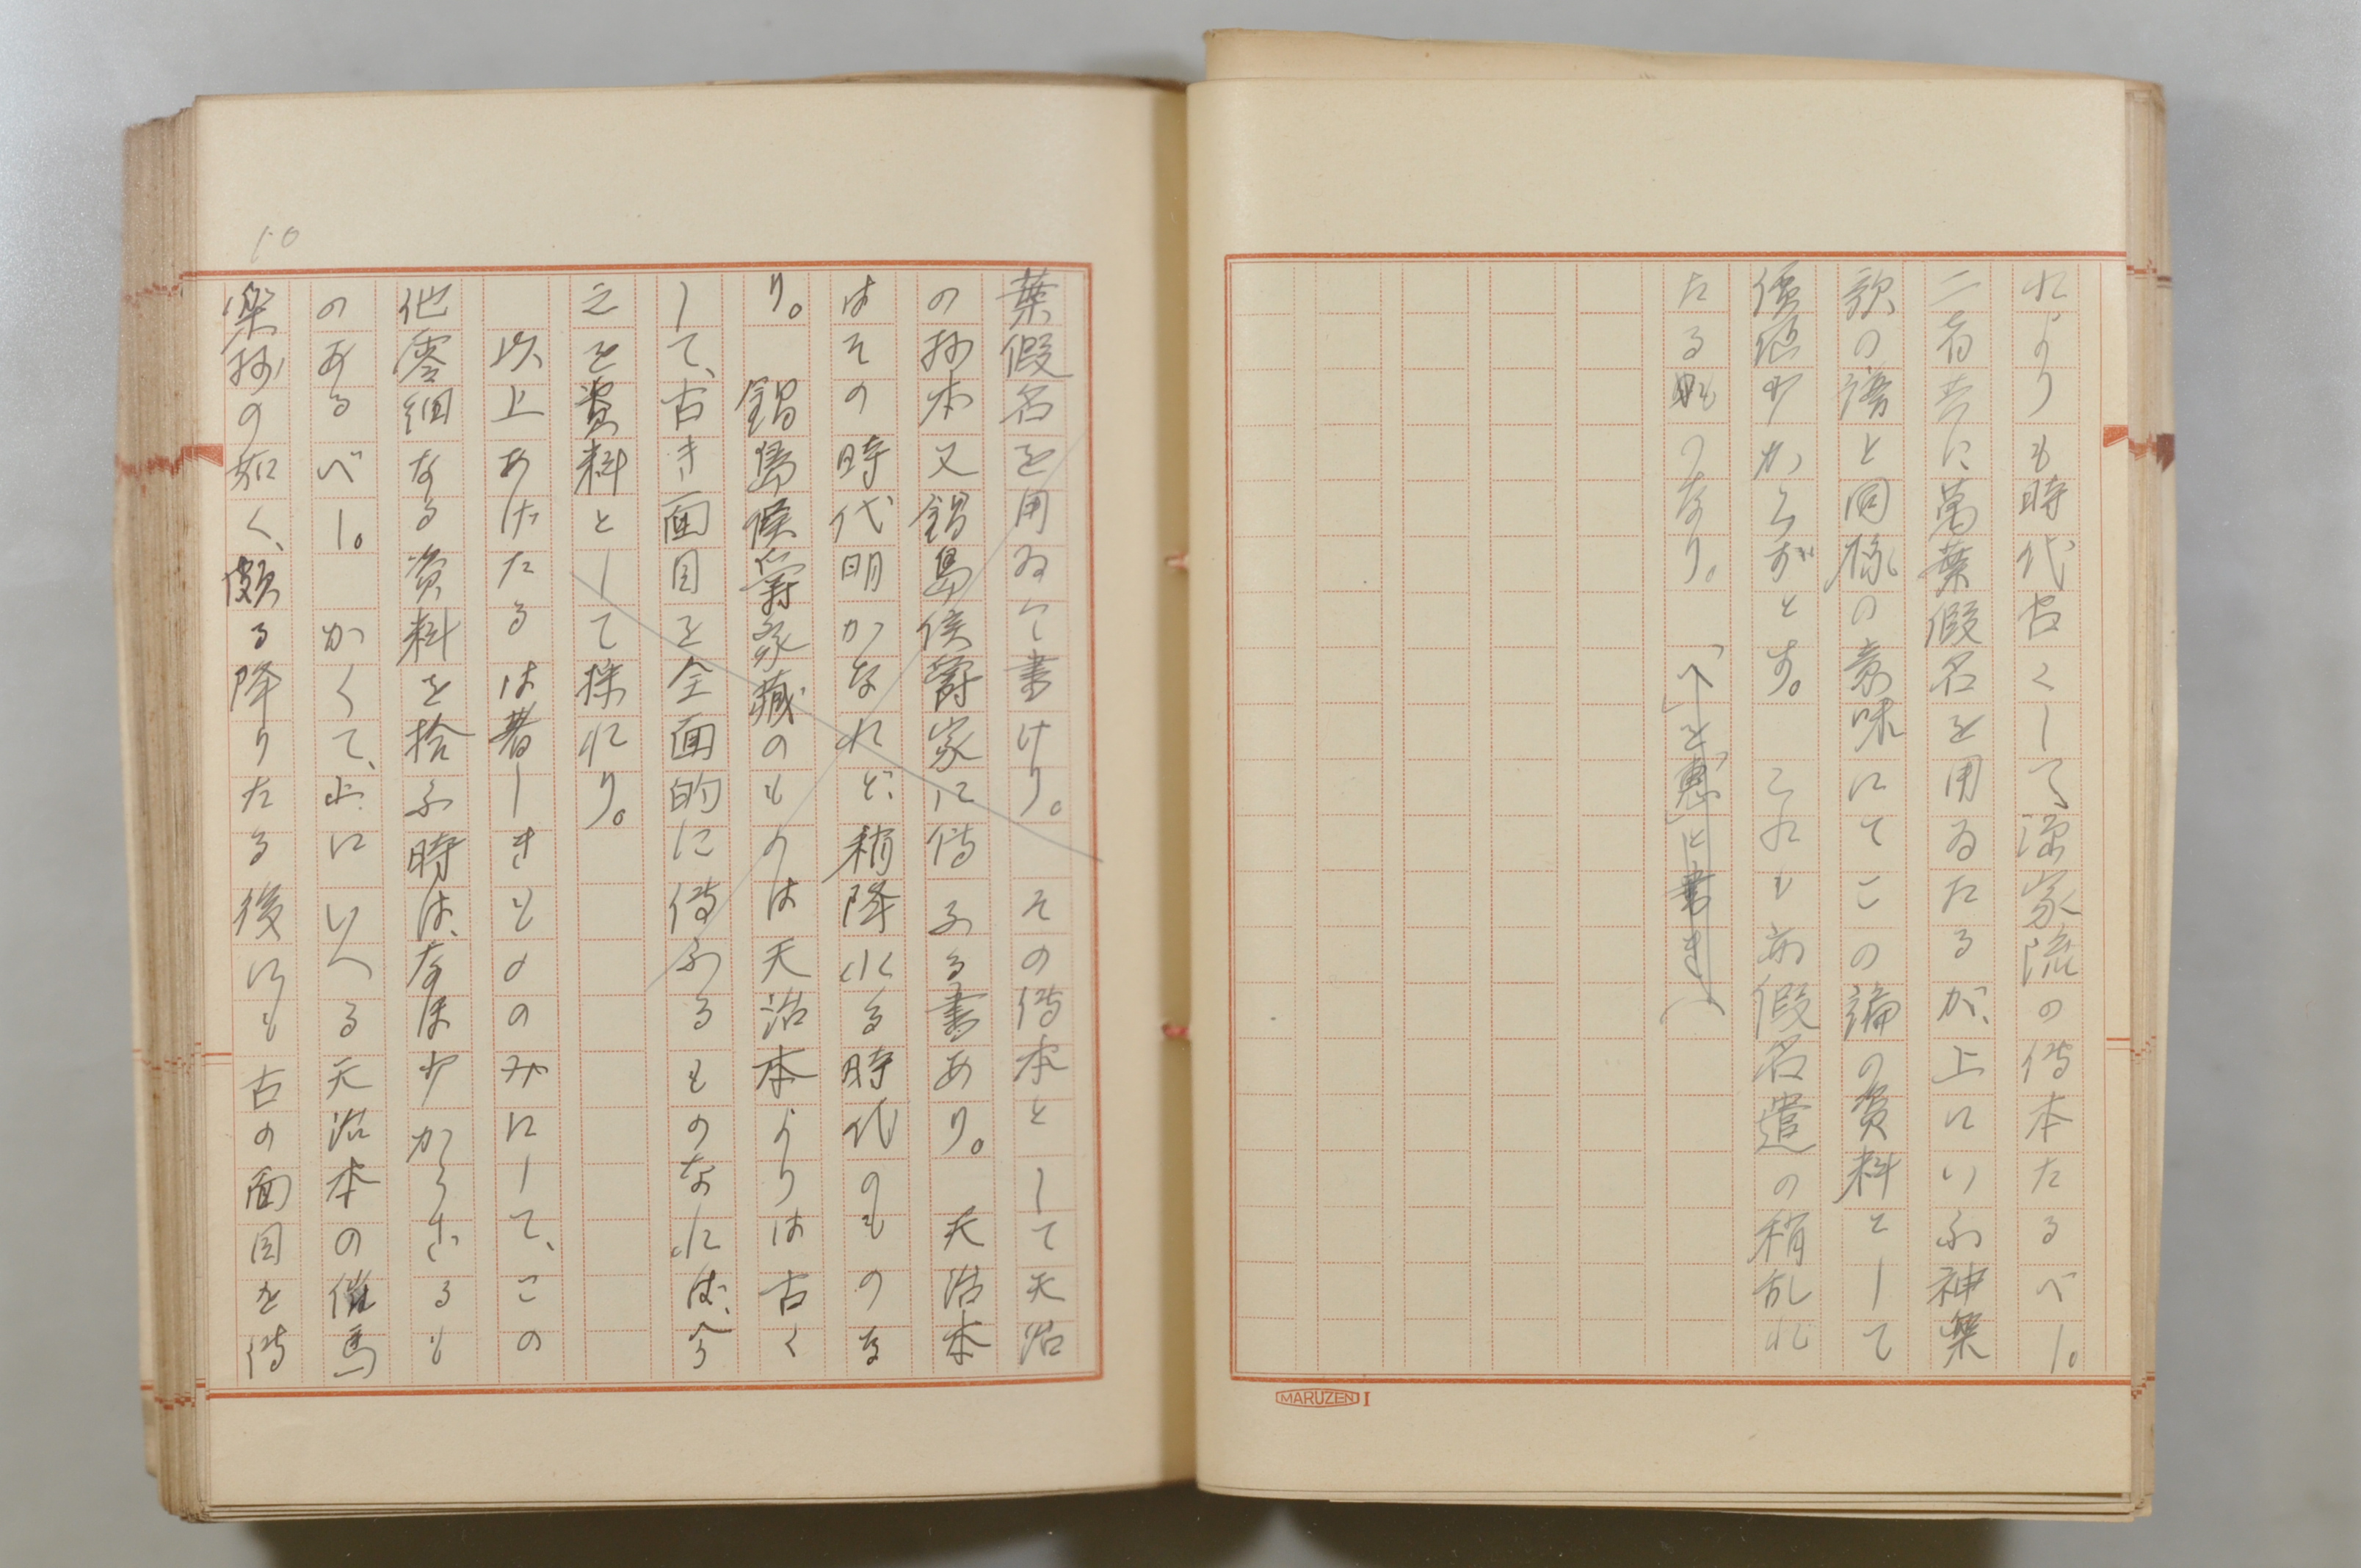 れよりも時代古くして源家流の傳本たるべし。
二者共に萬葉假名を用ゐたるが、上にいふ神樂
歌の譜と同様の意味にてこの論の資料として
價値少からずとす。これも亦假名遣の稍乱れ
たるものなり。「へ」を「惠」と書き(
MARUZEN I
葉假名を用ゐて書けり。その傳本として天治
の抄本又鍋島侯爵家に傳ふる書あり。天治本
はその時代明かなれど、稍降れる時代のものな
り。鍋島侯爵家藏のものは天治本よりは古く
して、古き面目を全面的に傳ふるものなれば、今
之を資料として採れり。
以上あげたるは著しきもののみにして、この
他零細なる資料を拾ふ時は、なほ少からざるも
のあるべし。かくて、上にいへる天治本の催馬
樂抄の如く、頗る降りたる後にも古の面目を傳
10